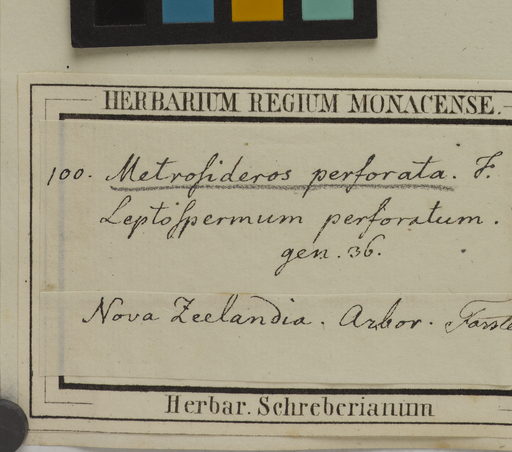 HERBARIUM REGIUM MONACENSE.
100. Metrosideros perforata. F.
Leptospermum perforatum.
gen. 36.
Nova Zeelandia. Arbor. Forste
Herbar. Schreberianum